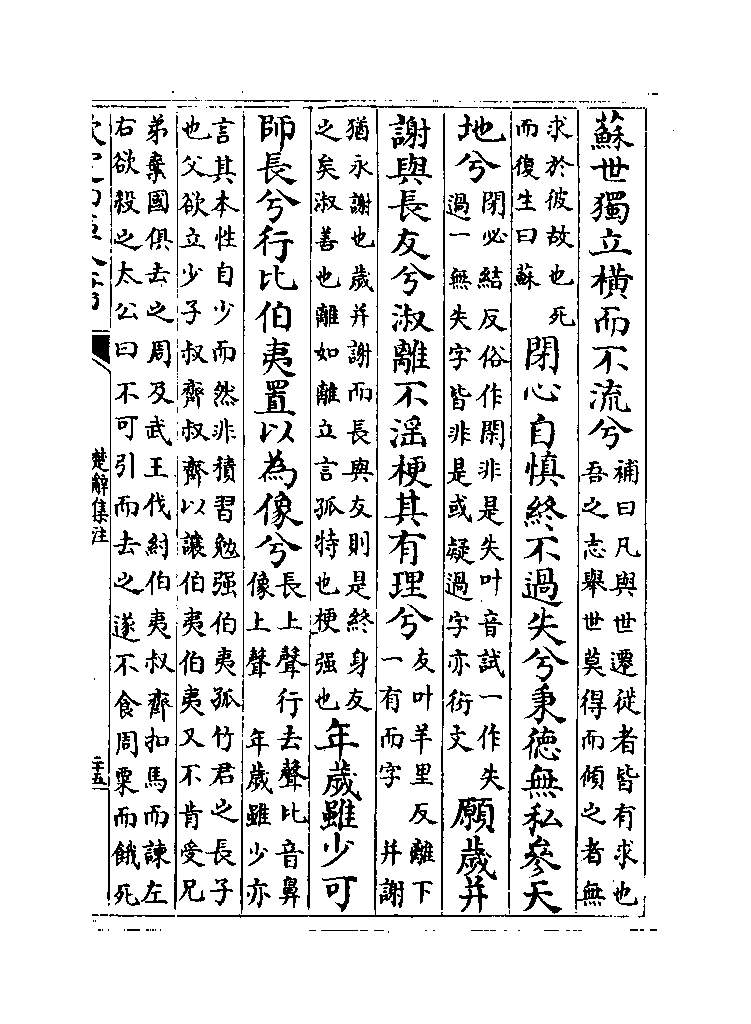 蘇世獨立橫而不流兮補曰凡與世遷從者皆有求也
吾之志舉世莫得而傾之者無
求於彼故也死
而復生曰蘇
閉心自慎終不過失兮秉德無私參天
地兮
閉必結反俗作閑非是失叶音試一作失
過一無失字皆非是或疑過字亦衍文
願歲并
謝與長友兮淑離不淫梗其有理兮
友叶羊里反離下
一有而字 并謝
猶永謝也歲并謝而長與友則是終身友
之矣淑善也離如離立言孤特也梗强也
年歲雖少可
師長兮行比伯夷置以為像兮
長上聲行去聲比音鼻
像上聲 年歲雖少亦
言其本性自少而然非積習勉强伯夷孤竹君之長子
也父欲立少子叔齊叔齊以讓伯夷伯夷又不肯受兄
弟棄國俱去之周及武王伐紂伯夷叔齊扣馬而諫左
右欲殺之太公曰不可引而去之遂不食周粟而餓死
楚辭集注